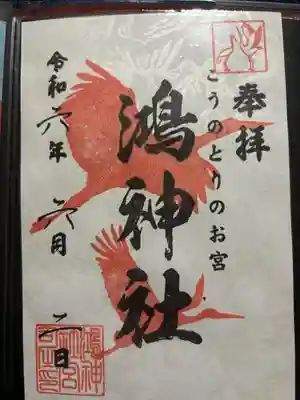 奉拝
こうのとりのお宮
鴻神社
令和六年 六月 二日